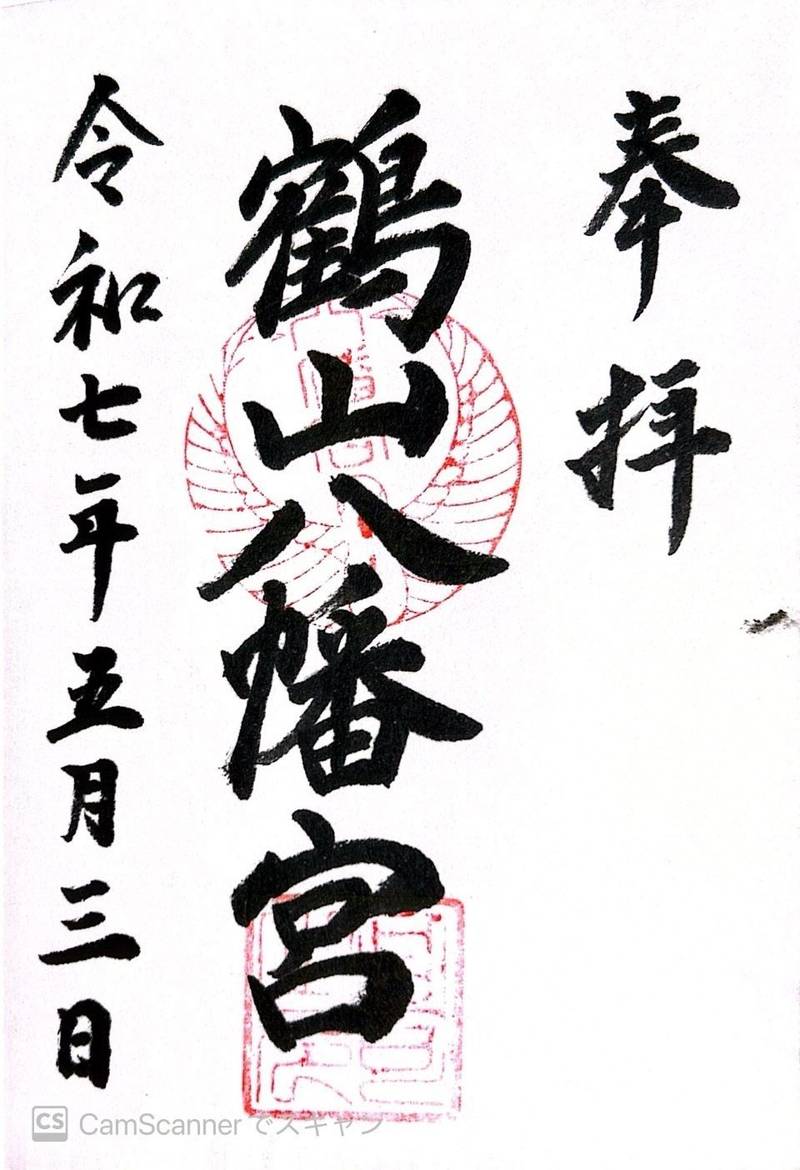 奉拝
鶴山八幡宮
令和七年五月三日
CS CamScanner でスキャン